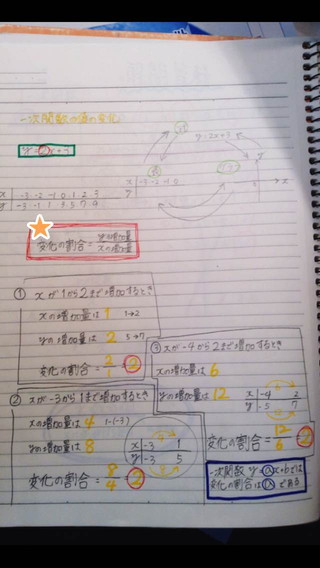 一次関数の値の変化
y=2x+3
式
y=2x+3
x -3 -2 -1 0 1 2 3
y -3 -1 1 3 5 7 9
x -3 -2 -1 0
y
変化の割合 = yの増加量/xの増加量
① xが1から2まで増加するとき
xの増加量は 1 1→2
yの増加量は 2 5→7
変化の割合 = 2/1 = 2
② xが-3から1まで増加するとき
xの増加量は 4 1-(-3)
yの増加量は 8
x -3 1
y -3 5
変化の割合 = 8/4 = 2
③ xが-4から2まで増加するとき
xの増加量は 6
yの増加量は 12
x -4 2
y -5 7
変化の割合 = 12/6 = 2
一次関数 y=ax+bでは
変化の割合は a である